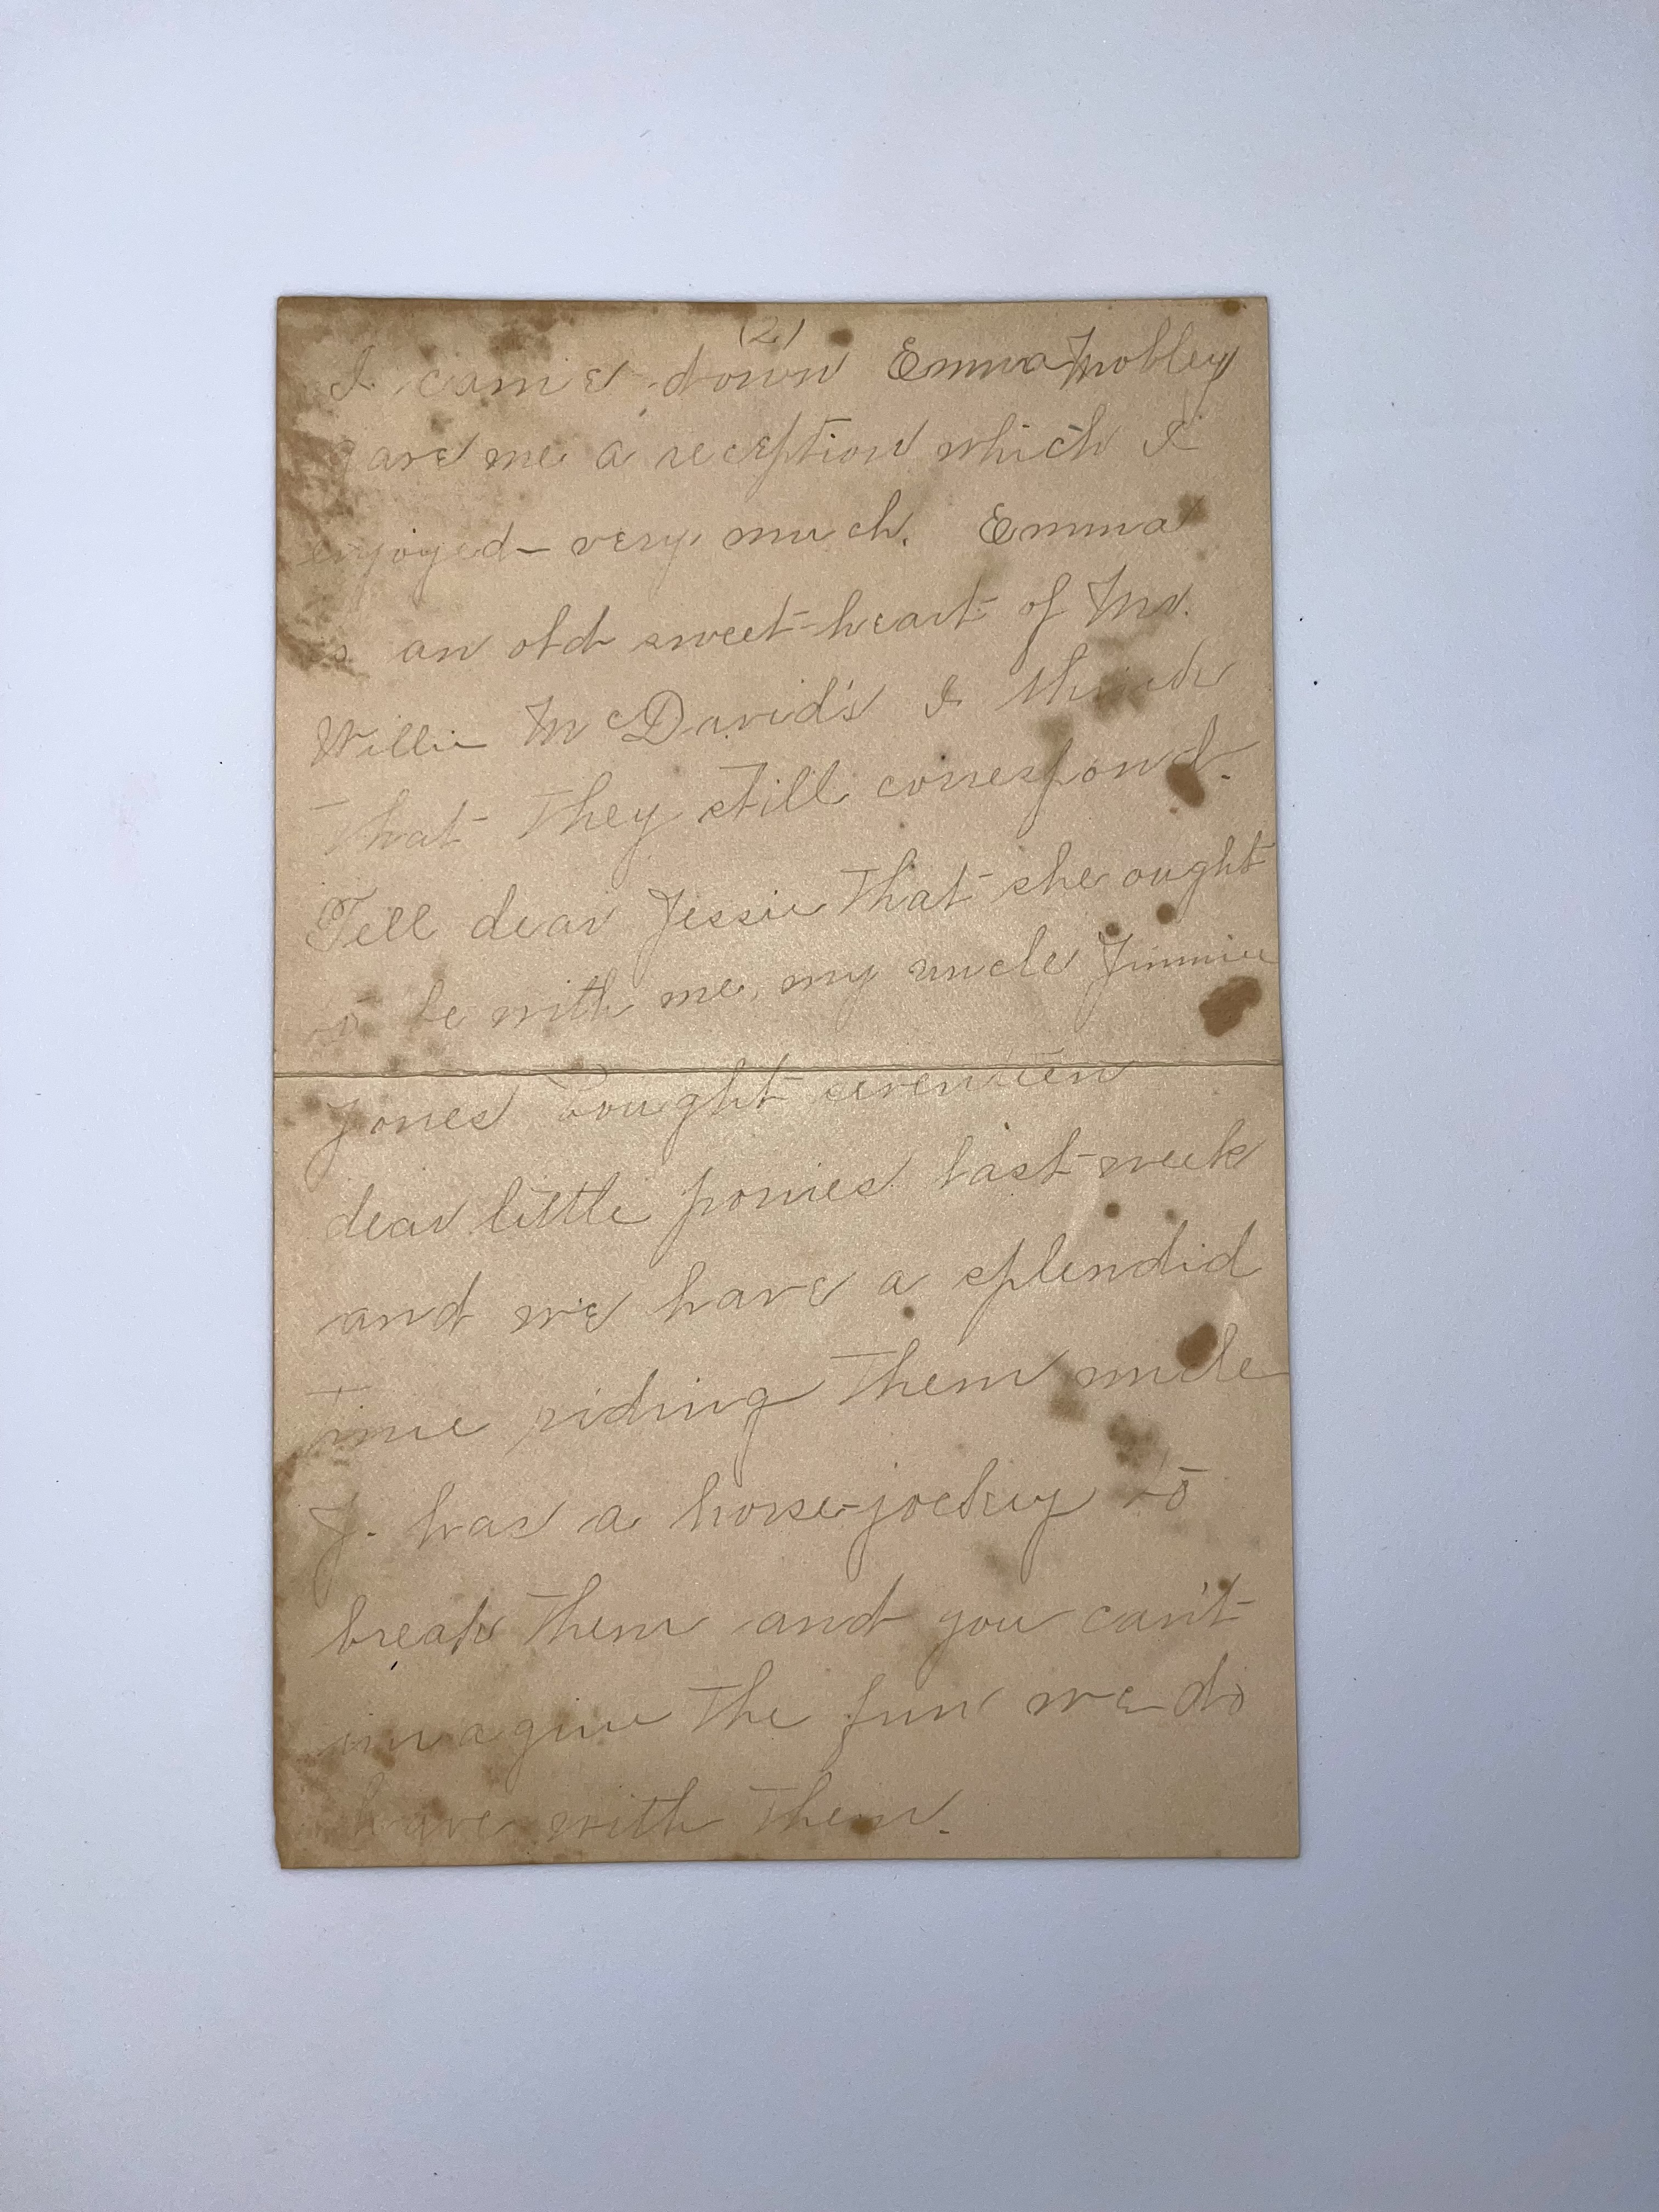 (2)
I came down Emma Mobley
gave me a reception which I
enjoyed very much. Emma
is an old sweet-heart of Mr.
Willie McDavid's I think
that they still correspond.
Tell dear Jessie that she ought
to be with me, my uncle Jimmie
Jones bought seventeen
dear little ponies last week
and we have a splendid
time riding them uncle
J. has a horse-jockey to
break them and you can't
imagine the fun we do
have with them.